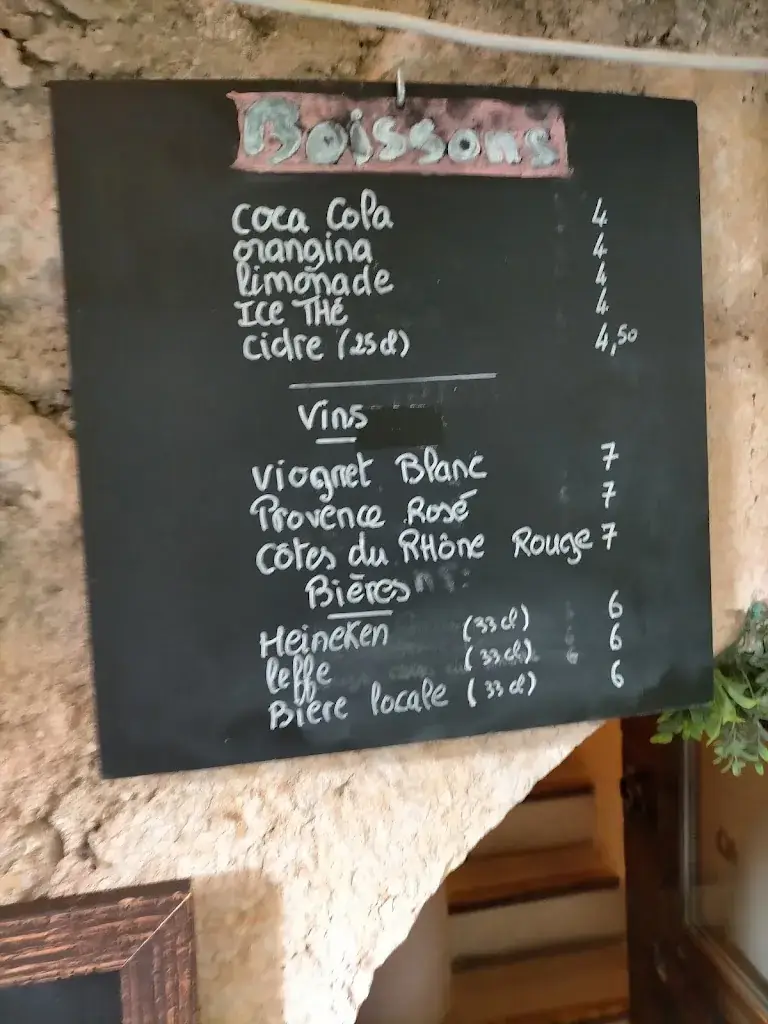 Boissons
coca Cola 4
orangina 4
limonade 4
ICE THÉ 4
cidre (25 cl) 4,50
Vins
viognet Blanc 7
Provence Rosé 7
côtes du RHône Rouge 7
Bières
HeineKen (33 cl) 6
leffe (33 cl) 6
Bière locale (33 cl) 6